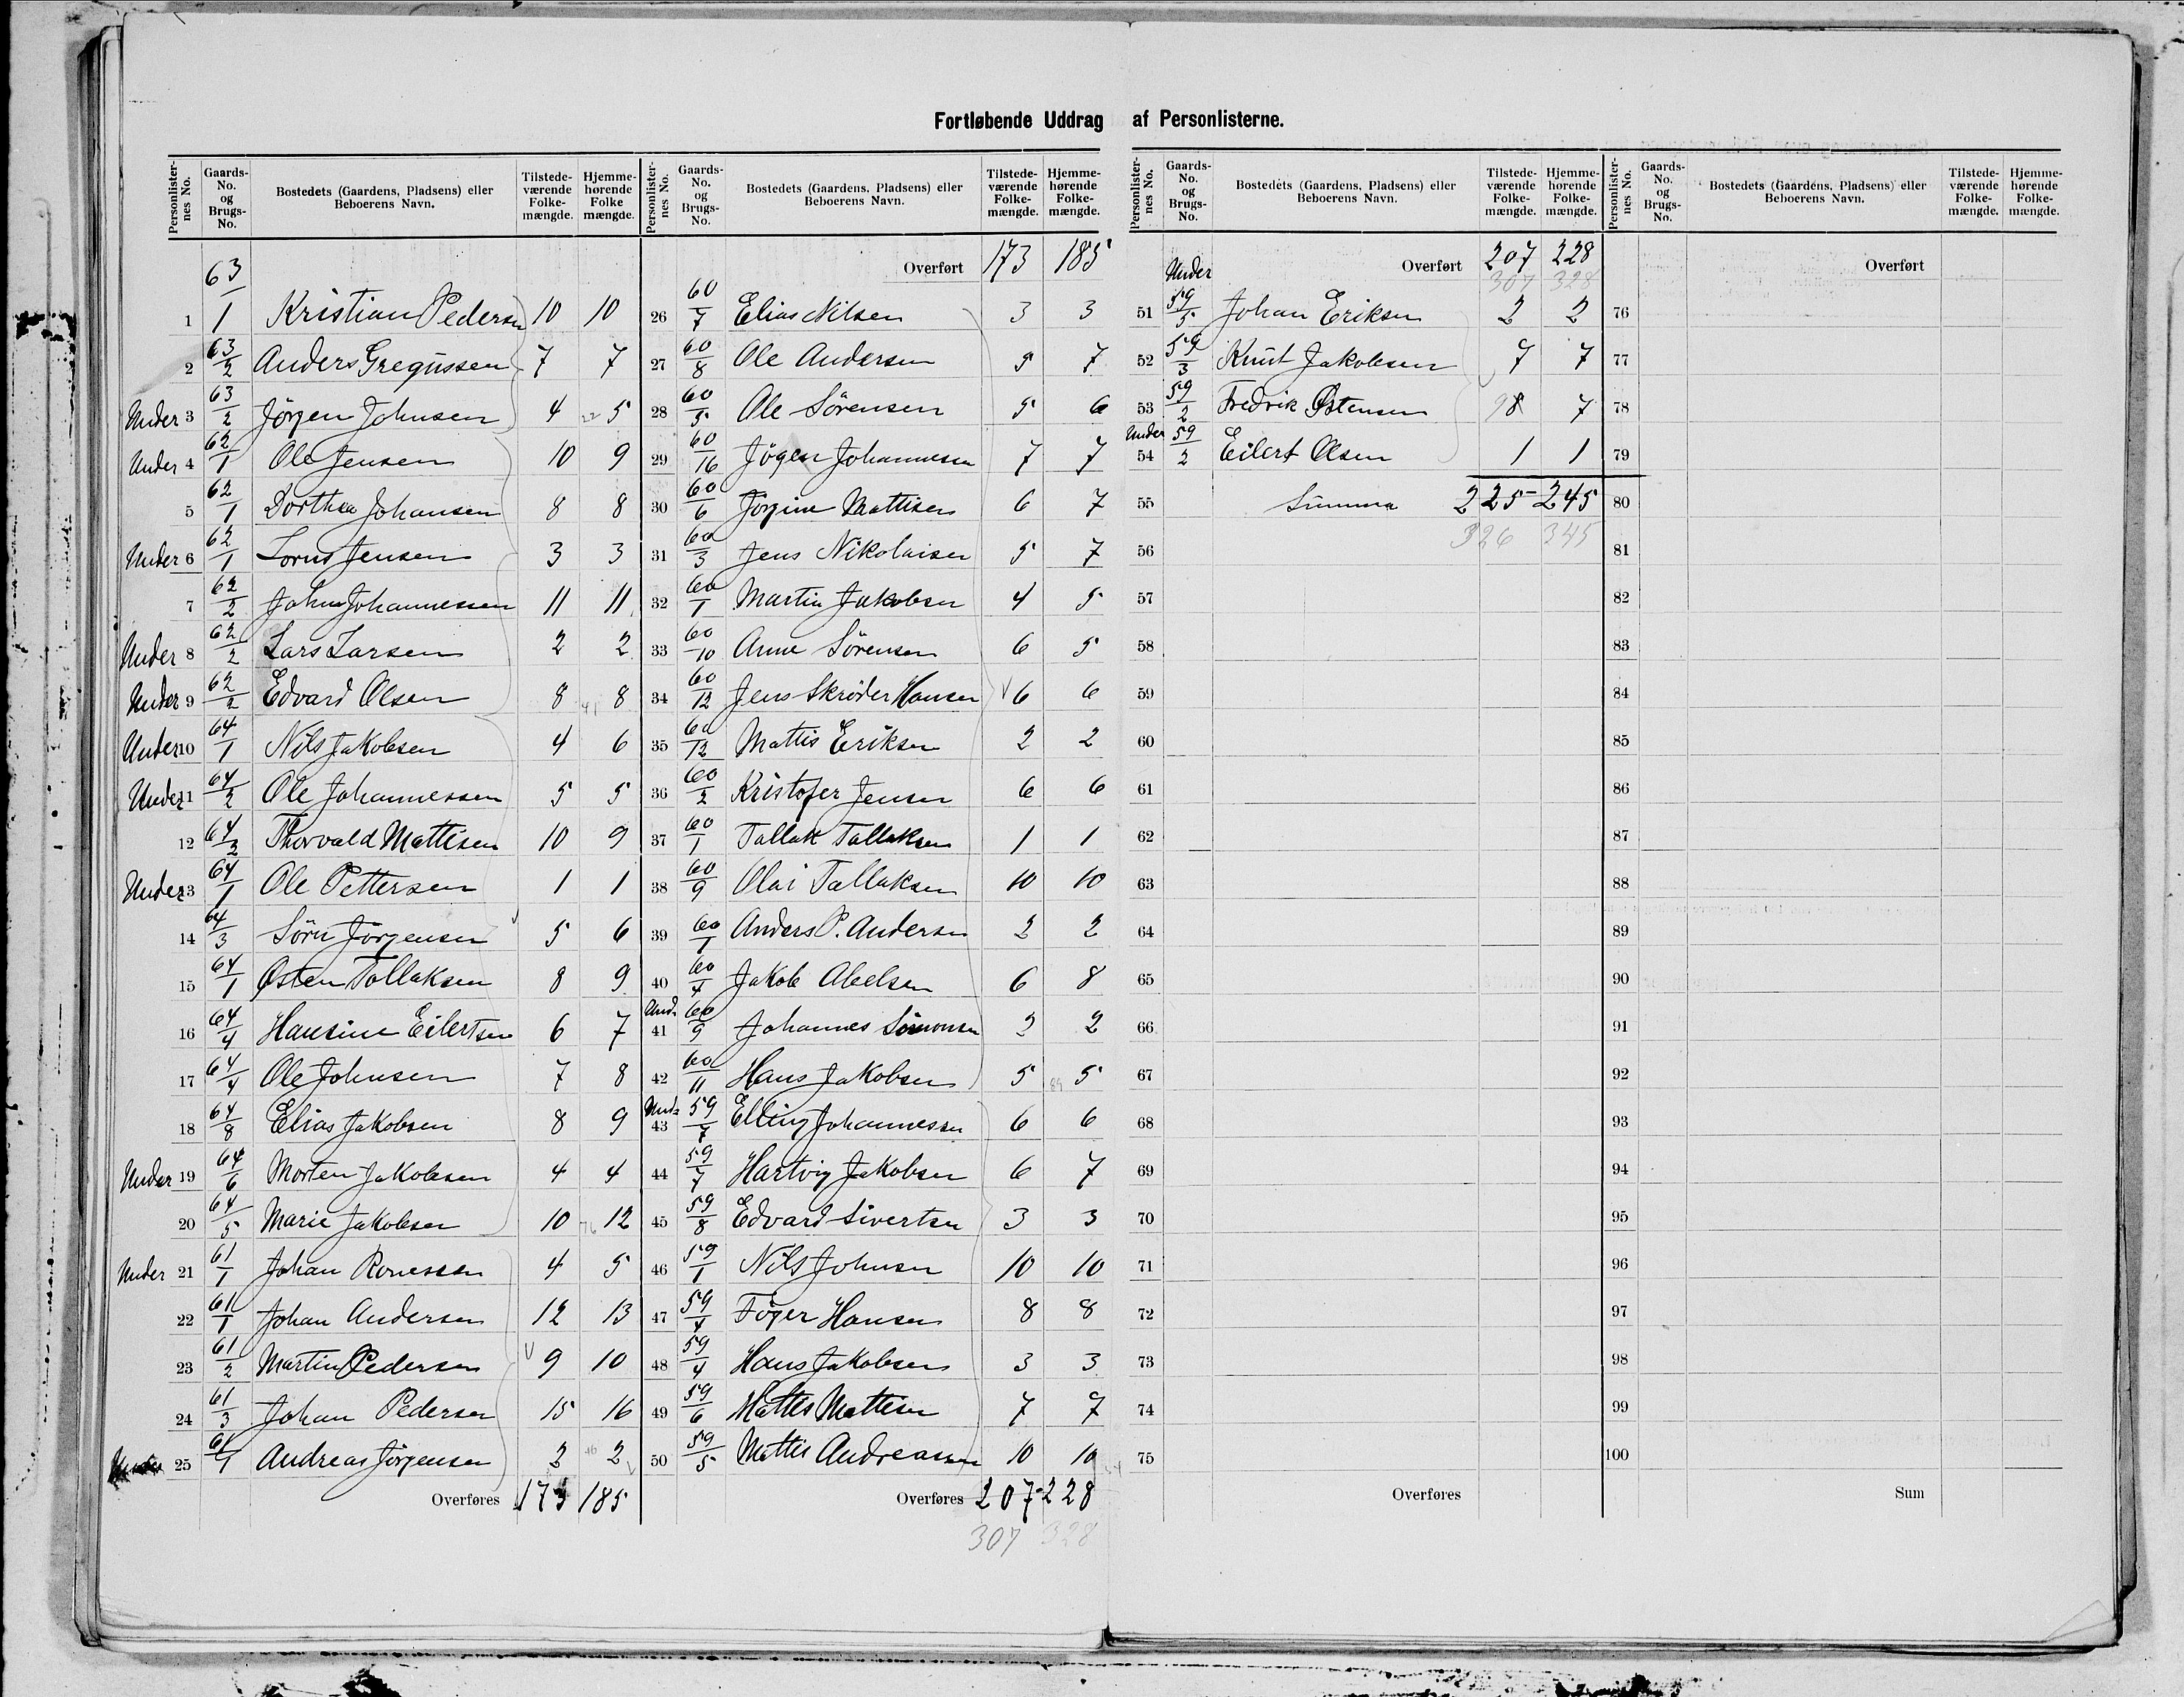 Fortløbende Uddrag af Personlisterne.
Personlister-nes No. Gaards-No. og Brugs-No. Bostedets (Gaardens, Pladsens) eller Beboerens Navn. Tilstede-værende Folke-mængde. Hjemme-hørende Folke mængde.
1 63/1 Kristian Pedersen 10 10
2 63/2 Anders Gregussen 7 7
Under 3 63/2 Jörgen Johnsen 4 22 5
Under 4 62/1 Ole Jensen 10 9
5 62/1 Dorthea Johansen 8 8
Under 6 62/1 Jensen 3 3
7 62/2 John Johannessen 11 11
Under 8 62/2 Lars Larsen 2 2
Under 9 62/2 Edvard Olsen 8 41 8
Under 10 64/1 Nils Jakobsen 4 6
Under 11 64/2 Ole Johannessen 5 5
12 64/2 Thorvald Mattisen 10 9
Under 13 64/1 Ole Pettersen 1 1
14 64/3 Sörn Jörgensen 5 6
15 64/1 Østen Tallaksen 8 9
16 64/4 Hansine Eilertsen 6 7
17 64/4 Ole Johnsen 7 8
18 64/8 Elias Jakobsen 8 9
Under 19 64/6 Morten Jakobsen 4 4
20 64/5 Marie Jakobsen 10 76 12
Under 21 61/1 Johan Ronessen 4 5
22 61/1 Johan Andersen 12 13
23 61/2 Martin Pedersen 9 10
24 61/3 Johan Pedersen 15 16
Under 25 61/1 Andreas Jörgensen 2 46 2
Overføres 173 185
Personlister-nes No. Gaards-No. og Brugs-No. Bostedets (Gaardens, Pladsens) eller Beboerens Navn. Tilstede-værende Folke-mængde. Hjemme-hørende Folke-mængde.
Overført 173 185
26 60/7 Elias Nilsen 3 3
27 60/8 Ole Andersen 5 7
28 60/5 Ole Sörensen 5 6
29 60/16 Jögen Johannessen 7 7
30 60/6 Jörgine Mattisen 6 7
31 60/3 Jens Nikolaisen 5 7
32 60/1 Martin Jakobsen 4 5
33 60/10 Anne Sörensen 6 5
34 60/12 Jens Skröder Hansen 6 6
35 60/12 Mattis Eriksen 2 2
36 60/2 Kristofer Jensen 6 6
37 60/1 Tallak Tallaksen 1 1
38 60/9 Olai Tallaksen 10 10
39 60/1 Anders P. Andersen 2 2
40 60/4 Jakob Abelsen 6 8
Und. 41 60/9 Johannes Simonsen 2 2
42 60/11 Hans Jakobsen 5 89 5
Und. 43 59/7 Elling Johannessen 6 6
44 59/7 Hartvig Jakobsen 6 7
45 59/8 Edvard Sivertsen 3 3
46 59/1 Nils Johnsen 10 10
47 59/4 Föger Hansen 8 8
48 59/4 Hans Jakobsen 3 3
49 59/6 Mattis Mattisen 7 7
50 59/5 Mattis Andreassen 10 10
Overføres 207 228
307 328
Personlister-nes No. Gaards-No. og Brugs-No. Bostedets (Gaardens, Pladsens) eller Beboerens Navn. Tilstede-værende Folke-mængde. Hjemme-hørende Folke-mængde.
Overført 207 228
307 328
Under 51 59/5 Johan Eriksen 2 2
52 59/3 Knut Jakobsen 7 7
53 59/2 Fredrik Østensen 98 7
Under 54 59/2 Eilert Olsen 1 1
55 Summa 225 245
326 345
56
57
58
59
60
61
62
63
64
65
66
67
68
69
70
71
72
73
74
75
Overføres
Personlister-nes No. Gaards-No. og Brugs-No. Bostedets (Gaardens, Pladsens) eller Beboerens Navn. Tilstede-værende Folke-mængde. Hjemme-hørende Folke-mængde.
Overført
76
77
78
79
80
81
82
83
84
85
86
87
88
89
90
91
92
93
94
95
96
97
98
99
100
Sum